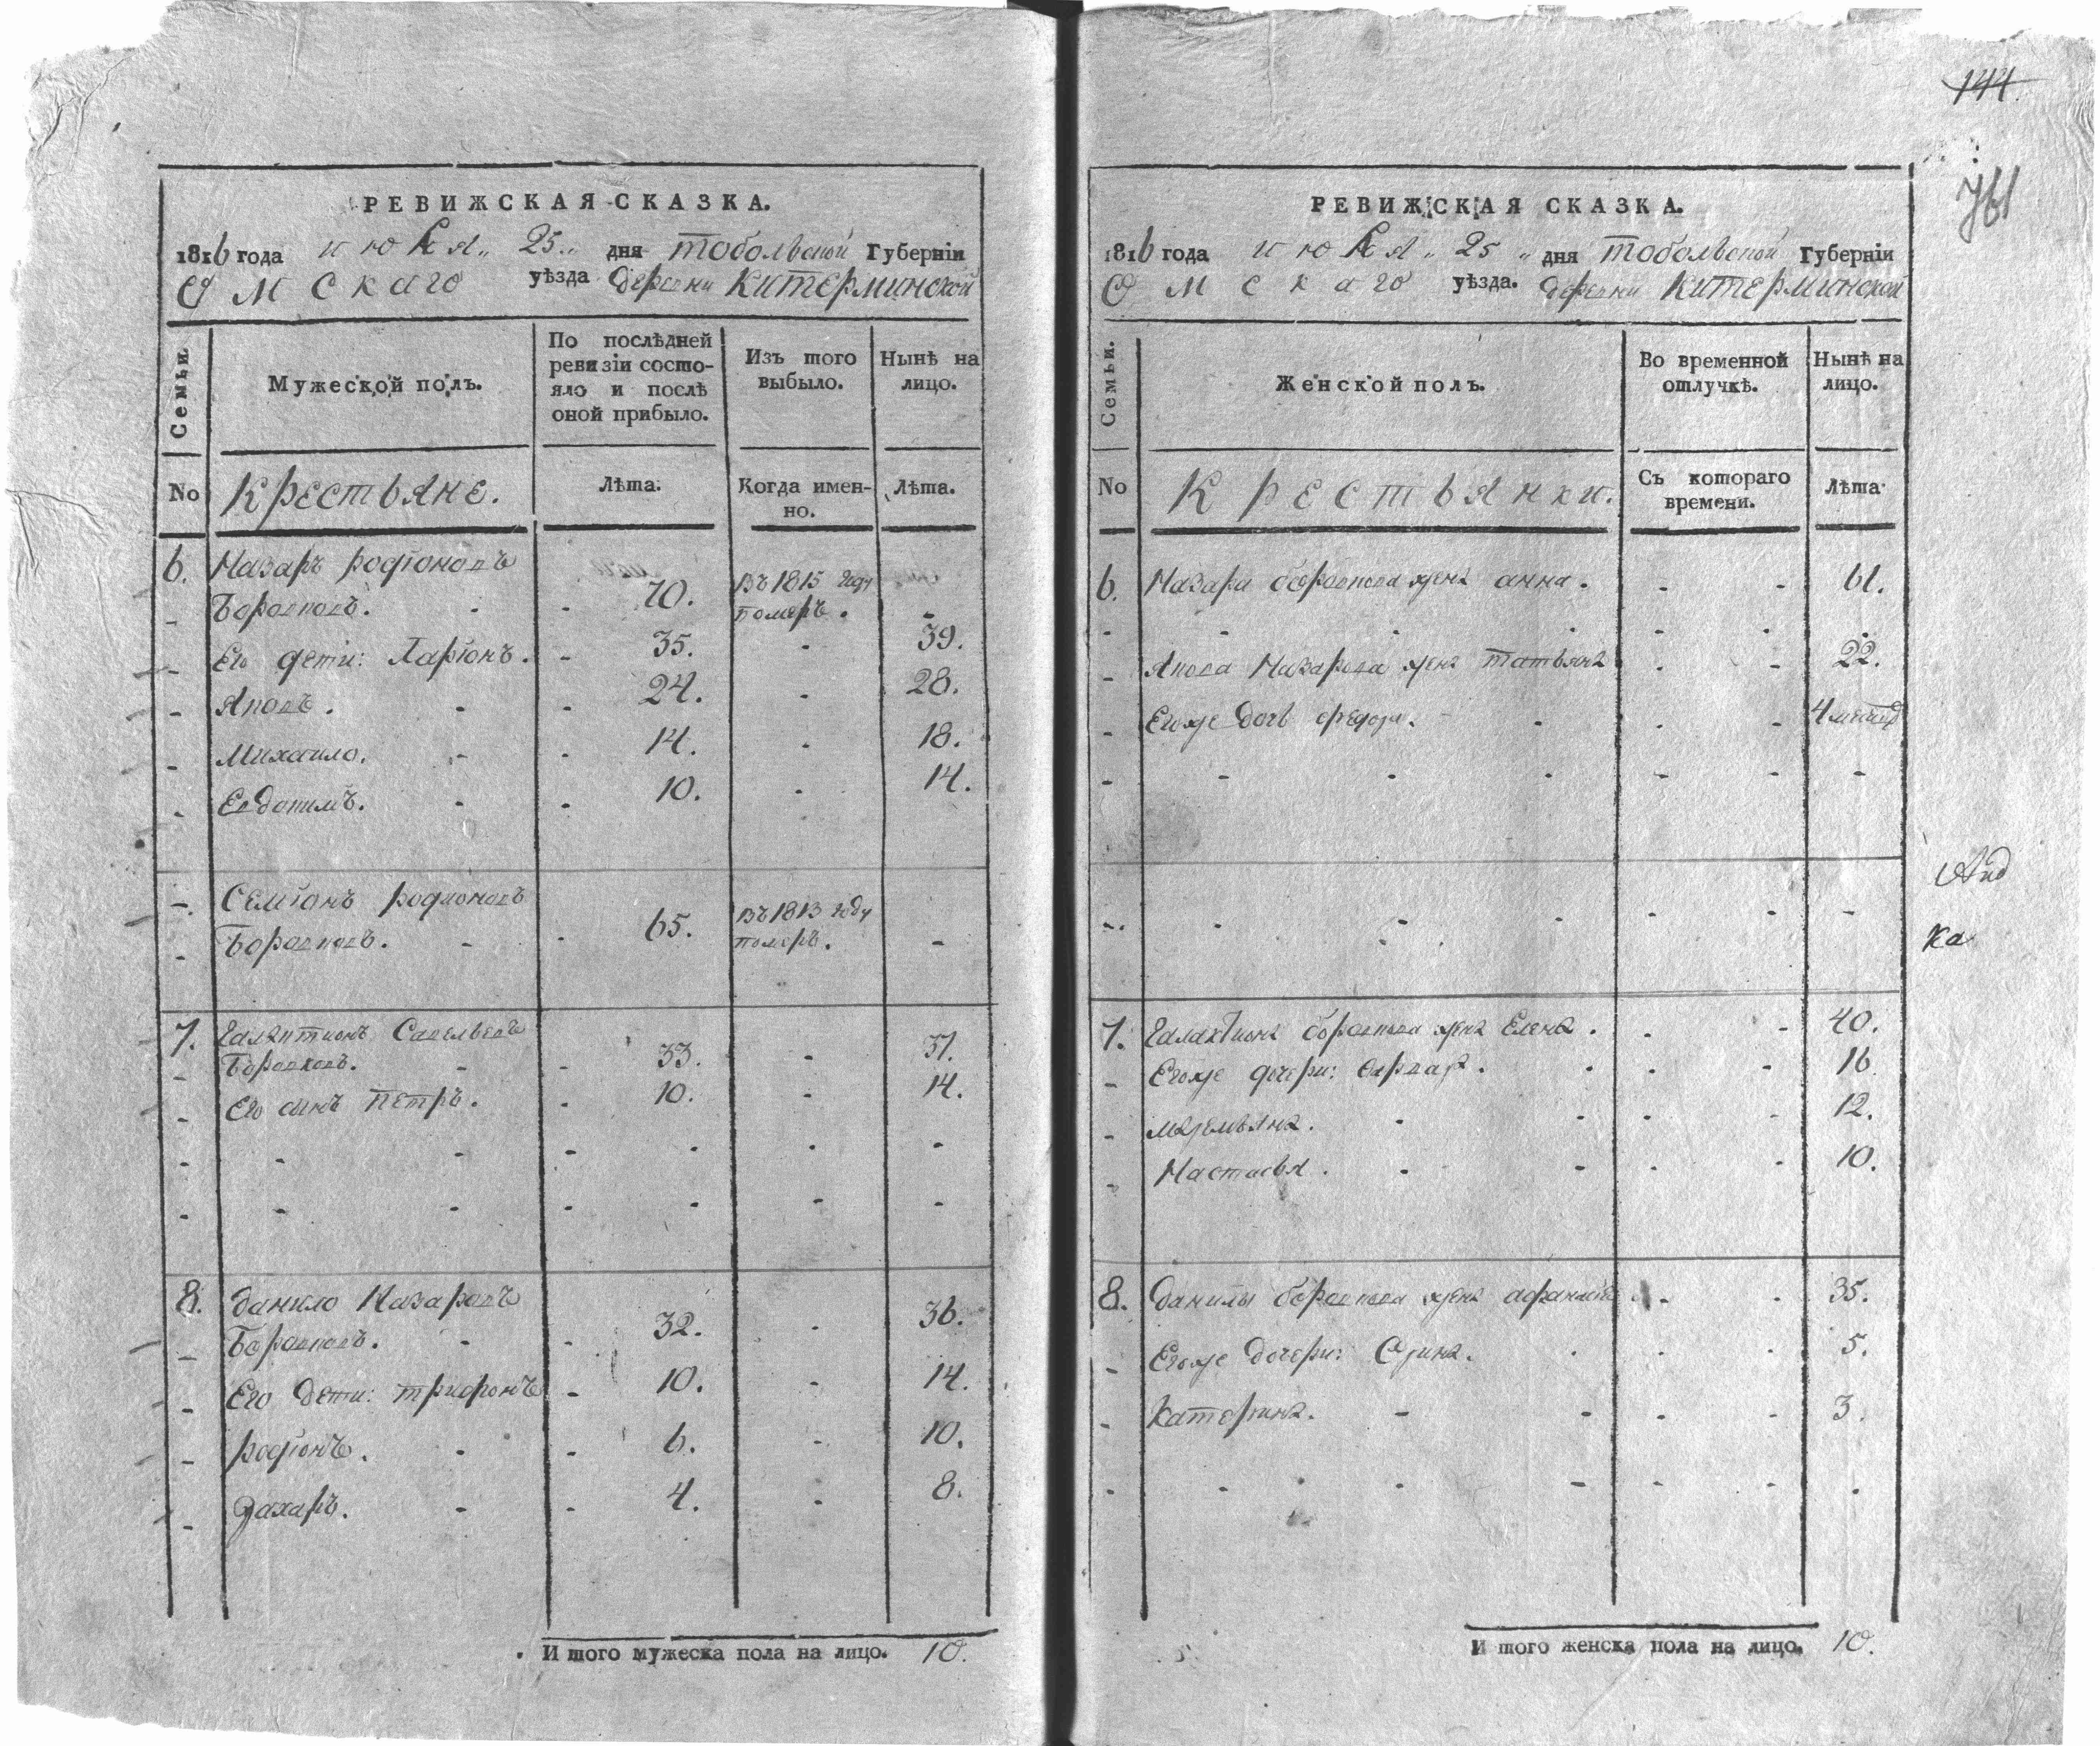 РЕВИЖСКАЯ СКАЗКА.
1816 года июля 25 дня тобольской Губерніи
Омскаго уѣзда деревни Китерминской
Семьи.
Мужеской полъ.
По послѣдней ревизіи состо-
яло и послѣ
оной прибыло.
Изъ того
выбыло.
Нынѣ на
лицо.
No
Крестьяне.
Лѣта.
Когда имен-
но.
Лѣта.
6. Назаръ родіоновъ
Боровковъ. 70. въ 1815 году
померъ.
Его дети: Ларіонъ. 35. 39.
Яковъ. 24. 28.
Михаило. 14. 18.
Евдокимъ. 10. 14.
Семіонъ родионовъ
Боровковъ. 65. въ 1813 году
померъ.
7. Галактионъ Савельевъ
Боровковъ. 33. 37.
Его сынъ Петръ. 10. 14.
8. данило Назаровъ
Боровковъ. 32. 36.
Его дети: трифонъ 10. 14.
родіонъ. 6. 10.
Захаръ. 4. 8.
И того мужеска пола на лицо. 10.
144.
РЕВИЖСКАЯ СКАЗКА.
1816 года июля 25 дня тобольской Губерніи
Омскаго уѣзда. деревни Китерминской
Семьи.
Женской полъ.
Во временной
отлучкѣ.
Нынѣ на
лицо.
No
Крестьянки.
Съ котораго
времени.
Лѣта
6. Назара боровкова жена анна. 61.
Якова Назарова жена татьяна 22.
Егоже дочь 4
7. Галактиона боровкова жена Елена. 40.
Егоже дочери: варвара. 16
маремьяна. 12.
Настасья. 10.
8. данилы боровкова жена 35.
Егоже дочери: 5.
Катерина. 3.
И того женска пола на лицо. 10.
Анд
Ка